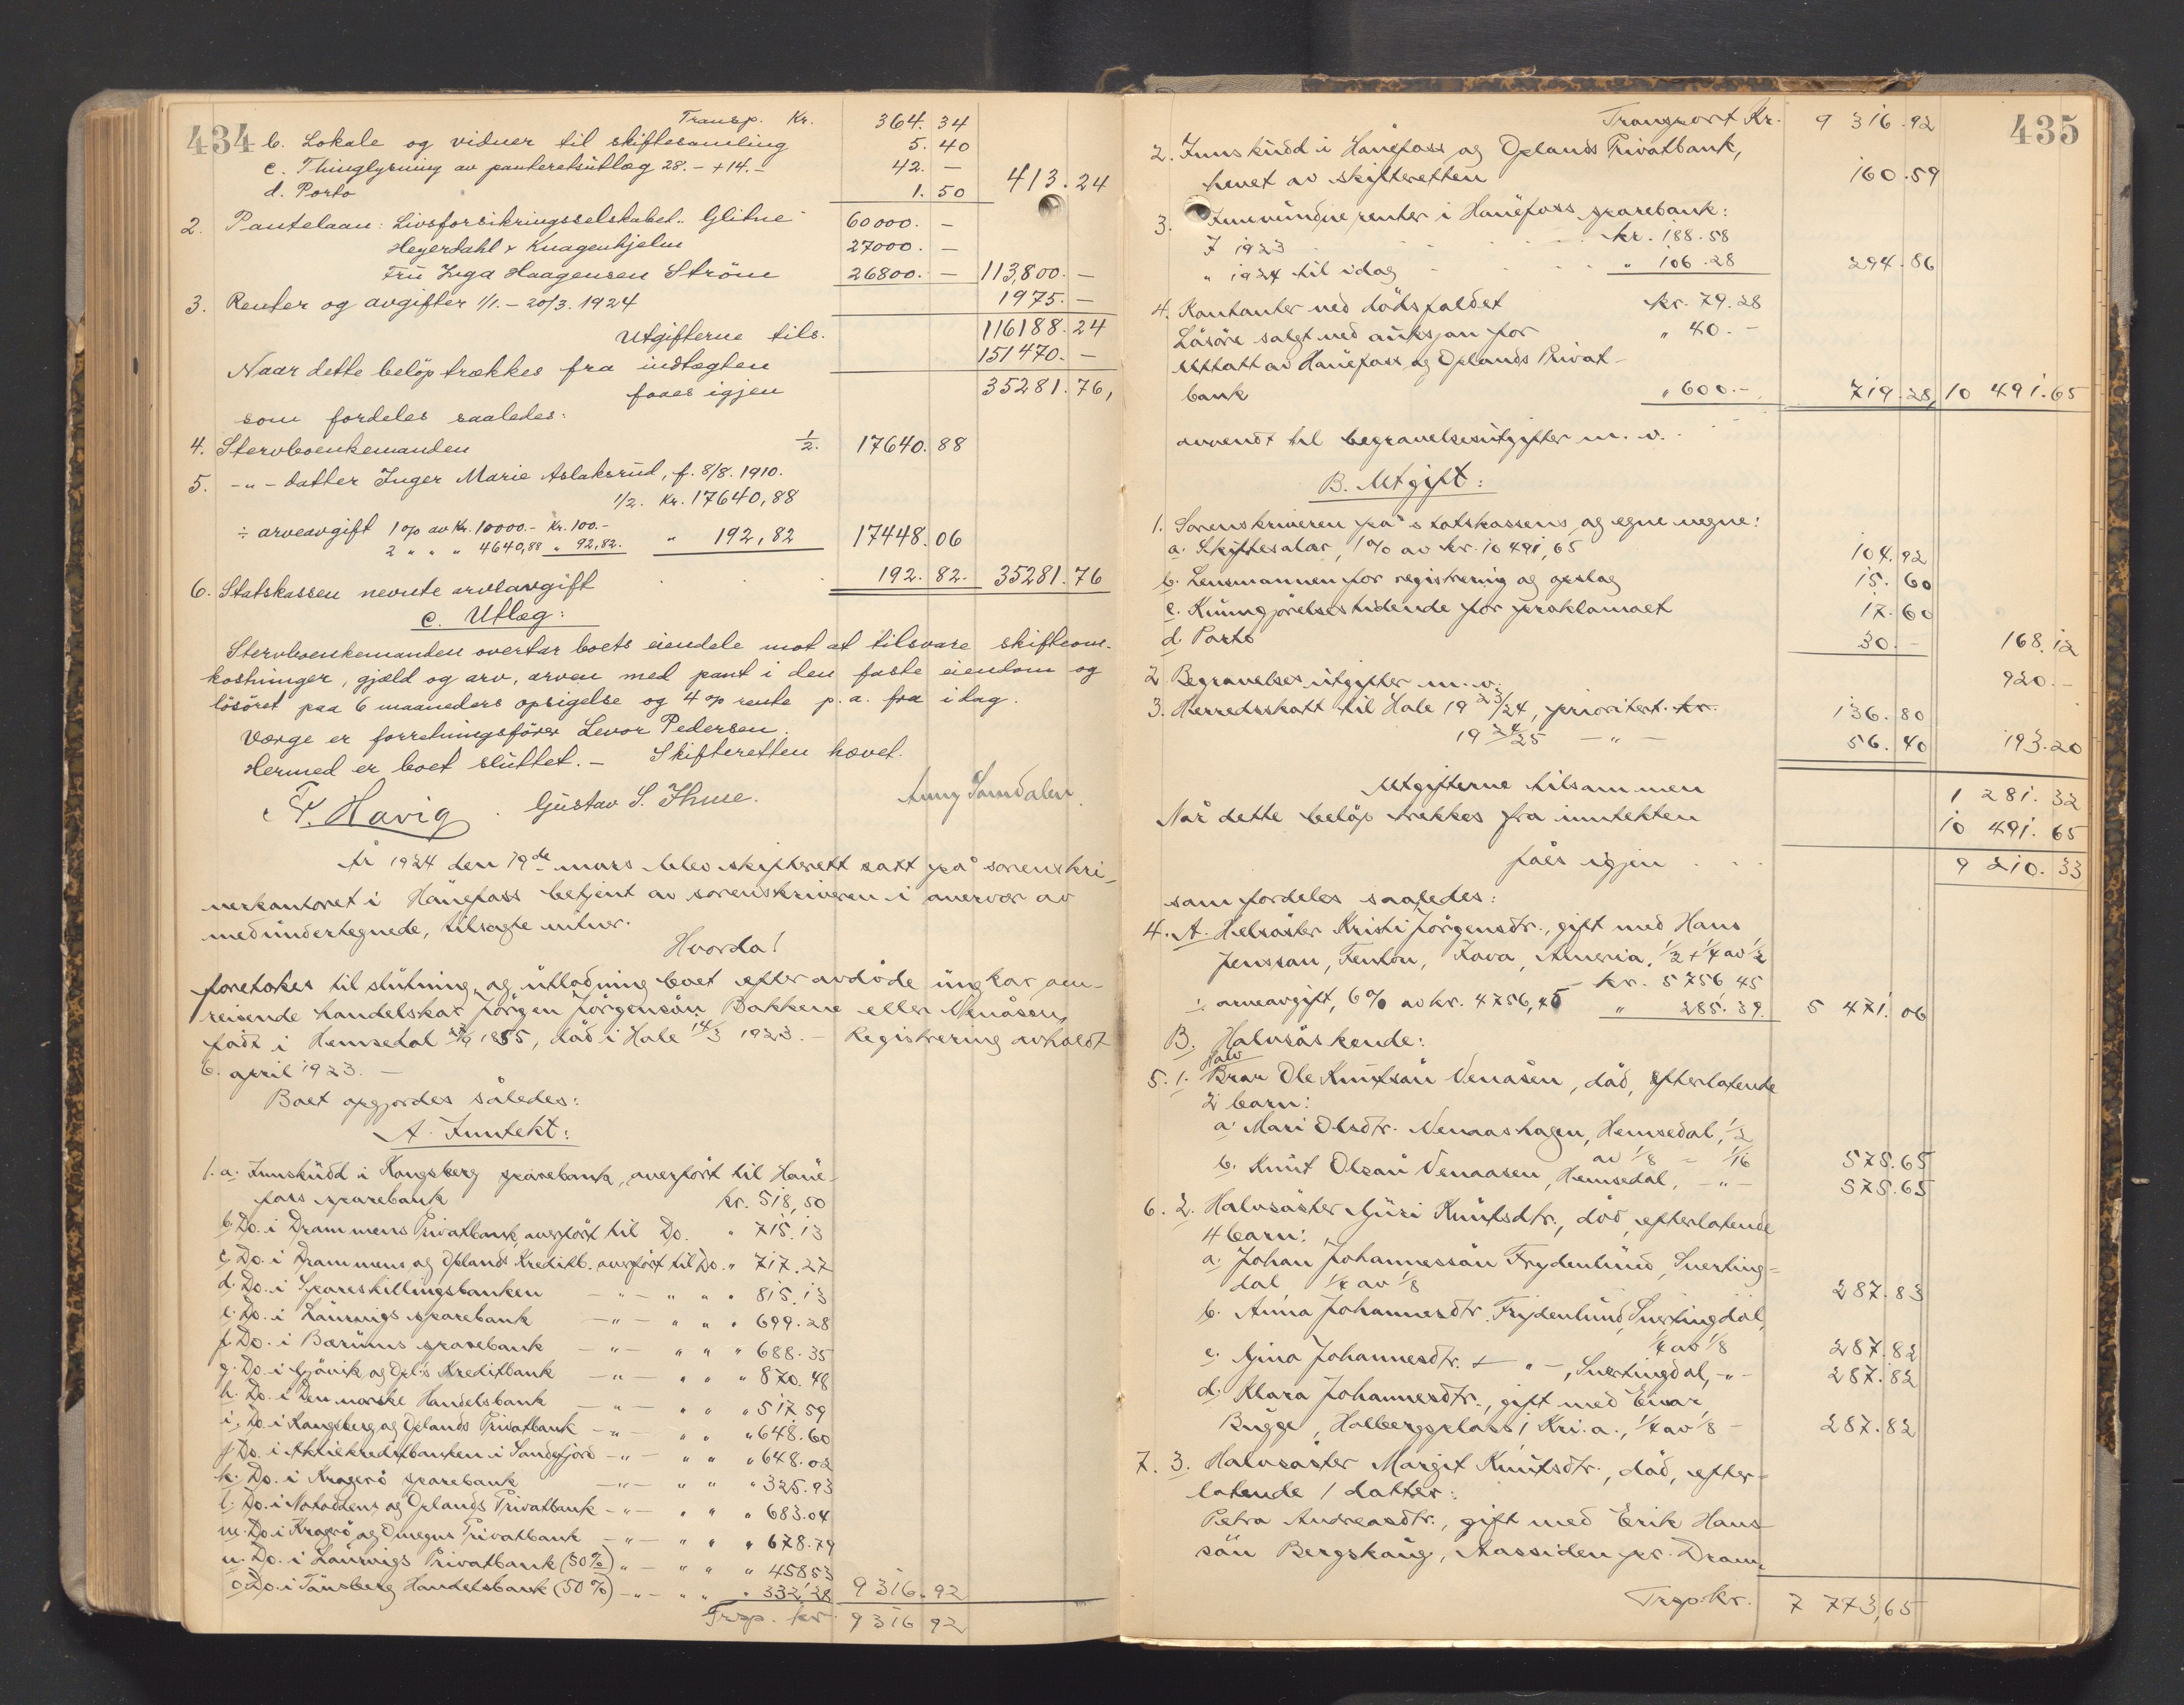 434
Transp. Kr. 364.34
b. Lokale og vidner til skiftesamling 5.40
c. Thinglysning av panteretsutlæg 28.- + 14.- 42.-
d. Porto 1.50 413.24
2. Pantelaan: Livsforsikringsselskabet "Glitne" 60000.-
Heyerdahl & Knagenhjelm 27000.-
Fru Inga Haagensen Ström 26800.- 113,800.-
3. Renter og avgifter 1/1.-20/3.1924 1975.-
Utgifterne tils. 116188.24
151470.-
Naar dette belöp trækkes fra indtægten
faaes igjen 35281.76,
som fordeles saaledes:
4. Stervboenkemanden 1/2. 17640.88
5. -"- datter Inger Marie Aslaksrud, f. 8/8.1910.
1/2. Kr. 17640,88
÷ arveavgift 1 % av Kr. 10000.- Kr. 100.-
2 " " " 4640,88 " 92,82. " 192,82 17448.06
6. Statskassen nevnte arveavgift 192.82. 35281.76
C. Utlæg:
Stervboenkemanden overtar boets eiendele mot at tilsvare skifteom-
kostninger, gjæld og arv, arven med pant i den faste eiendom og
lösöret paa 6 maaneders opsigelse og 4 % rente p.a. fra idag.
Værge er forretningsförer Levor Pedersen.
Hermed er boet sluttet. - Skifteretten hævet.
F. Havig Gustav S. Ihme. Anny Samdalen.
År 1924 den 19de mars blev skifterett satt på sorenskri-
verkontoret i Hönefoss betjent av sorenskriveren i overvær av
medundertegnede, tilsagte vitner.
Hvorda!
foretokes til slutning og utlodning boet efter avdöde ungkar, om-
reisende handelskar Jörgen Jörgensön Bakkene eller Venåsen,
födt i Hemsedal 1855, död i Hole 14/3 1923. - Registrering avholdt
6. april 1923. -
Boet opgjordes således:
A. Inntekt:
1. a. Innskudd i Kongsberg sparebank, overfört til Höne-
foss sparebank kr. 518,50
b. Do. i Drammens Privatbank, overfört til Do. " 715.13
c. Do. i Drammens og Oplands Kreditb. overfört til Do. " 717.27
d. Do. i Spareskillingsbanken -"- " " " 815.13
e. Do. i Laurvigs sparebank -"- " " " 699.28
f. Do. i Bærums sparebank -"- " " " 688.35
g. Do. i Gjövik og Opl.s Kreditbank -"- " " " 870.48
h. Do. i Den norske Handelsbank -"- " " " 517 59
i. Do. i Kongsberg og Oplands Privatbank -"- " " " 648.60
j. Do. i Aktiekreditbanken i Sandefjord -"- " " " 648.02
k. Do. i Kragerö sparebank -"- " " " 325.93
l. Do. i Notoddens og Oplands Privatbank -"- " " " 683.04
m. Do. i Kragerö og Omegns Privatbank -"- " " " 678.79
n. Do. i Laurvigs Privatbank (50%) -"- " " " 45853
o. Do. i Tönsberg Handelsbank (50%) -"- " " " 332.28 9316.92
Trsp. kr. 9316 92
435
Transport Kr. 9 316.92
2. Innskudd i Hönefoss og Oplands Privatbank,
hevet av skifteretten 160.59
3. Innvundne renter i Hönefoss sparebank:
I 1923 kr. 188.58
" 1924 til idag " 106.28 294.86
4. Kontanter ved dödsfaldet kr. 79.28
Lösöre solgt ved auksjon for " 40.-
Uttatt av Hönefoss og Oplands Privat-
bank " 600.- 719.28, 10 491.65
anvendt til begravelsesutgifter m.v.
B. Utgift:
1. Sorenskriveren på statskassens og egne vegne:
a. Skiftesalær, 1% av kr. 10 491,65 104.92
b. Lensmannen for registrering og opslag 15.60
c. Kunngjörelsestidende for proklamaet 17.60
d. Porto 30.- 168.12
2. Begravelsesutgifter m.v. 920.-
3. Herredsskatt til Hole 19 23/24, prioritert. kr. 136.80
19 24/25 -"- 56.40 193.20
Utgifterne tilsammen 1 281.32
Når dette belöp trekkes fra inntekten 10 491.65
fåes igjen 9 210.33
som fordeles saaledes:
4. A. Helsöster Kristi Jörgensdtr., gift med Hans
Jenssön, Fenton, Iova, Ameria, 1/2 + 1/4 av 1/2
kr. 5756 45
÷ arveavgift, 6% av kr. 4756,45 " 285.39. 5 471.06
B. Halvsöskende:
5. 1. Halv Bror Ole Knutsön Venåsen, död, efterlatende
2 barn:
a. Mari Olsdtr. Venaashagen, Hemsedal, 1/2
av 1/8 - 1/16 575.65
b. Knut Olsön Venaasen, Hemsedal, -"- 575.65
6. 2. Halvsöster Guri Knutsdtr., död, efterlatende
4 barn:
a. Johan Johannessön Frydenlund, Snerting-
dal 1/4 av 1/8 287.83
b. Anna Johannesdtr. Frydenlund, Snertingdal,
1/4 av 1/8 287.82
c. Gina Johannesdtr. -"-, Snertingdal, -"- 287.82
d. Klara Johannesdtr., gift med Einar
Bugge, Holbergsplass 1 Kri.a., 1/4 av 1/8 - 287.82
7. 3. Halvsöster Margit Knutsdtr., död, efter-
latende 1 datter:
Petra Andreasdtr., gift med Erik Hans-
sön Bergskaug, Aassiden pr. Dram.
Trsp. kr. 7 773,65